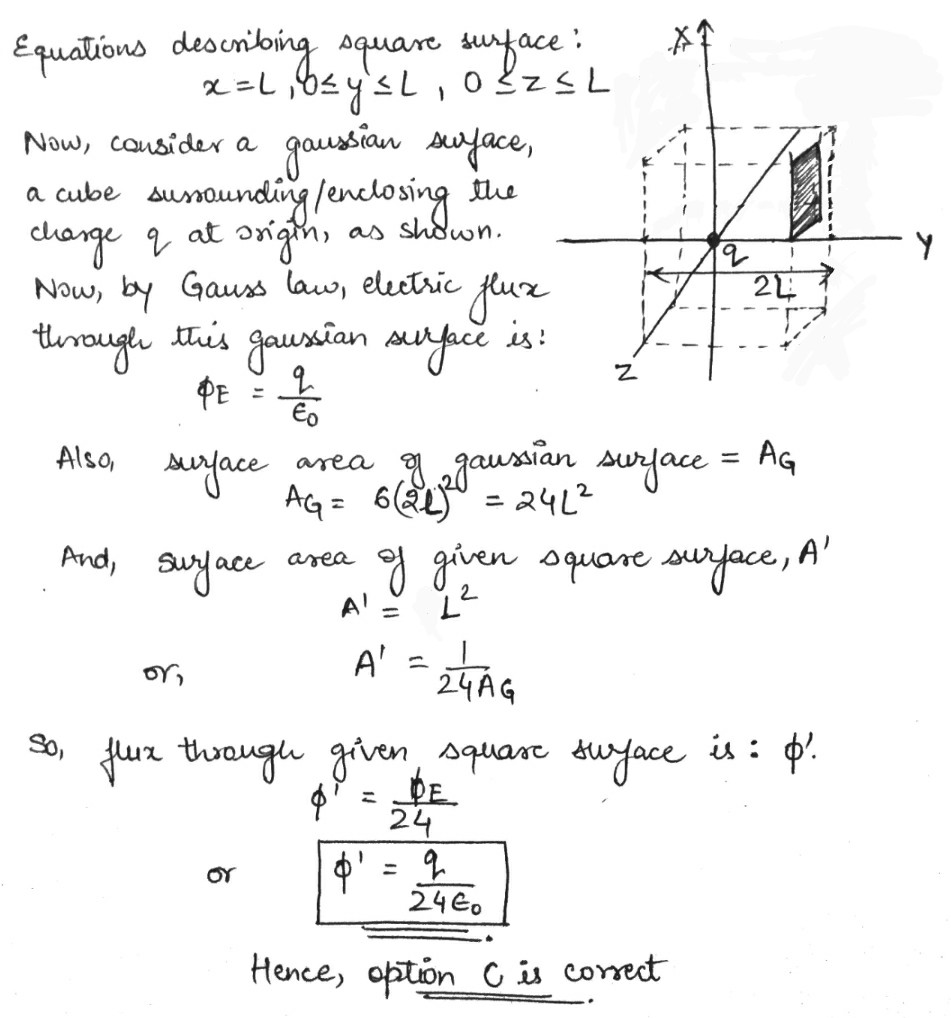 Equations describing square surface:
x = L, 0 ≤ y ≤ L, 0 ≤ z ≤ L
Now, consider a gaussian surface,
a cube surrounding/enclosing the
charge q at origin, as shown.
Now, by Gauss law, electric flux
through this gaussian surface is:
ϕE = q/ϵ0
X
Y
q
2L
Z
Also, surface area of gaussian surface = AG
AG = 6(2L)² = 24L²
And, surface area of given square surface, A'
A' = L²
or, A' = 1/24 AG
So, flux through given square surface is: ϕ'.
ϕ' = ϕE/24
or ϕ' = q/24ϵ0
Hence, option C is correct